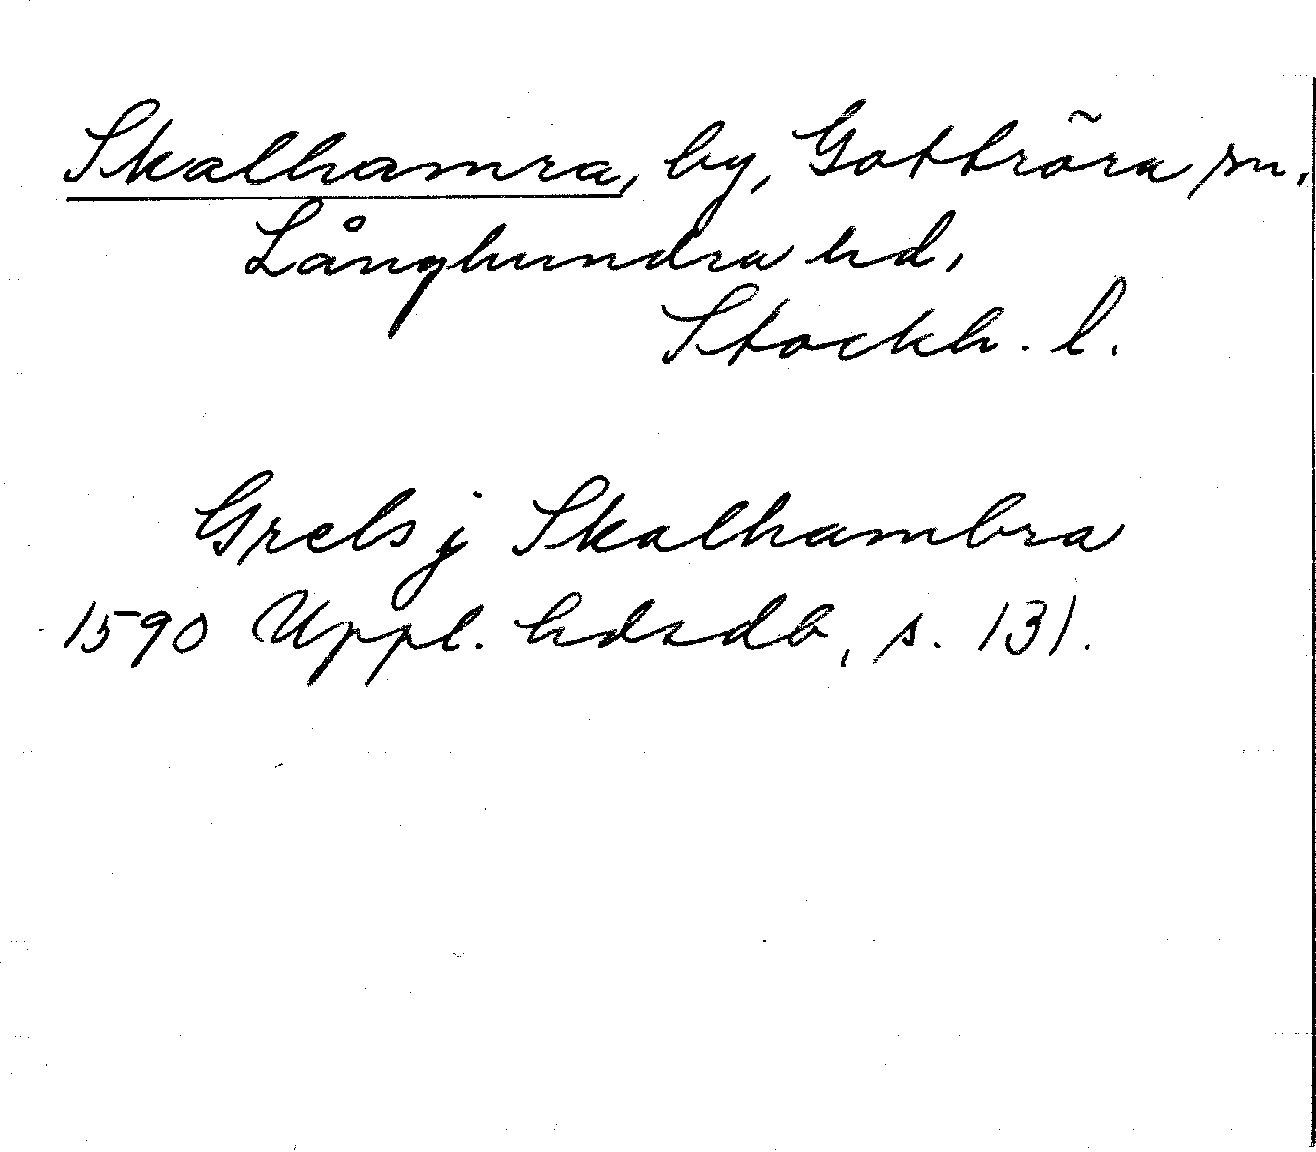 Skalhamra, by, Gottröra sn.
Långhundra hd,
Stockh. l.
Grels j Skalhambra
1590 Uppl. hdsdb, s. 131.